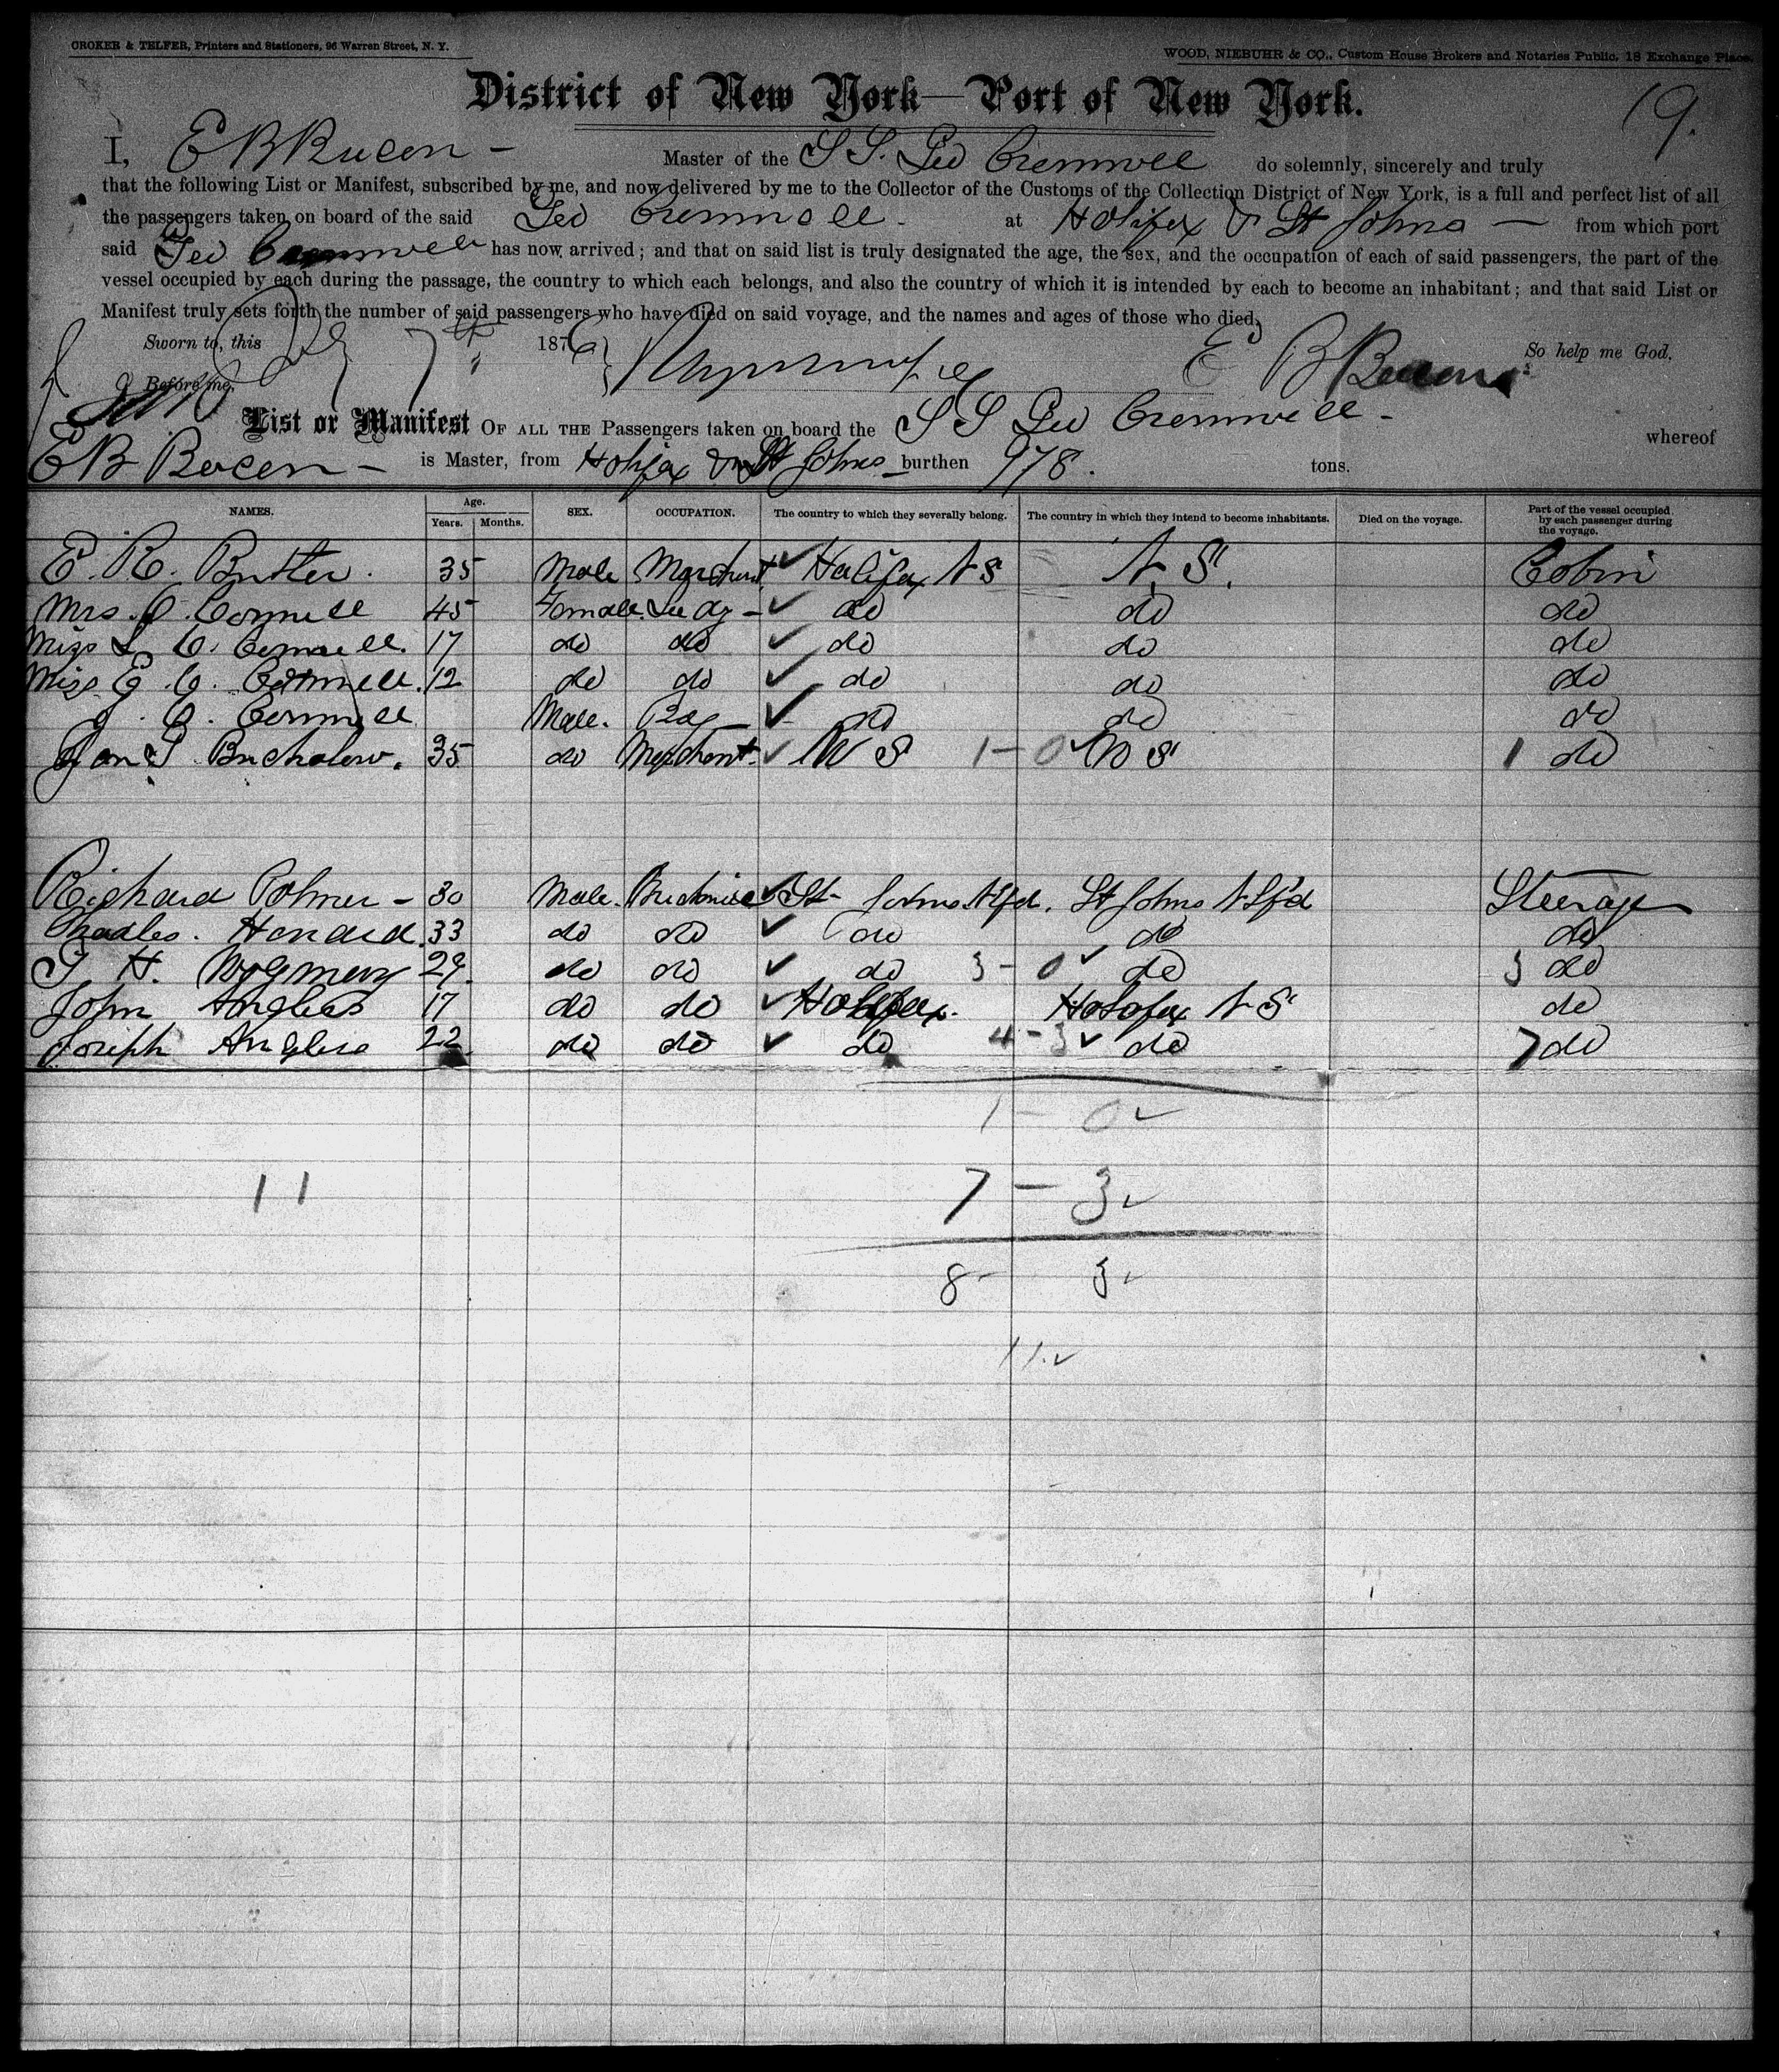 CROKER & TELFER, Printers and Stationers, 96 Warren Street, N. Y.
WOOD, NIEBUHR & CO., Custom House Brokers and Notaries Public, 18 Exchange Place.
District of New York—Port of New York.
19.
I, E B Bacon - Master of the S S. Geo Cromwell do solemnly, sincerely and truly
that the following List or Manifest, subscribed by me, and now delivered by me to the Collector of the Customs of the Collection District of New York, is a full and perfect list of all
the passengers taken on board of the said Geo Cromwell - at Halifax & St Johns — from which port
said Geo Cromwell has now arrived; and that on said list is truly designated the age, the sex, and the occupation of each of said passengers, the part of the
vessel occupied by each during the passage, the country to which each belongs, and also the country of which it is intended by each to become an inhabitant; and that said List or
Manifest truly sets forth the number of said passengers who have died on said voyage, and the names and ages of those who died.
Sworn to, this 7th 1876 So help me God.
Before me, E B Bacon
List or Manifest OF ALL THE Passengers taken on board the S S Geo Cromwell - whereof
E B Bacon - is Master, from Halifax & St Johns burthen 978. tons.
NAMES. Age. Years. Months. SEX. OCCUPATION. The country to which they severally belong. The country in which they intend to become inhabitants. Died on the voyage. Part of the vessel occupied by each passenger during the voyage.
E. R. Butler. 35 Male Merchant ✓ Halifax N S N. S. Cabin
Mrs. C. Connell 45 Female Lady - ✓ do do do
Miss L. C. Connell. 17 do do ✓ do do do
Miss E. C. Connell. 12 do do ✓ do do do
J. C. Connell Male. Boy - ✓ do do do
35 do Merchant ✓ N S 1 - 0 ✓ N S 1 do
Richard Palmer - 30 Male. ✓ St Johns Nfd. St Johns Nfd Steerage
Charles. Howard. 33 do do ✓ do do do
T H. 29. do do ✓ do 3 - 0 ✓ do 3 do
John Anglers 17 do do ✓ Halifax. Halifax N S do
Joseph Anglers 22 do do ✓ do 4 - 3 ✓ do 7 do
1 - 0 ✓
11 7 - 3 ✓
8 - 3 ✓
11. ✓